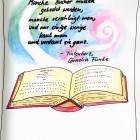 Manche Bücher müssen
gekostet werden,
manche verschlingt man,
und nur einige wenige
kaut man
und verdaut sie ganz.
- Tintenherz,
Cornelia Funke